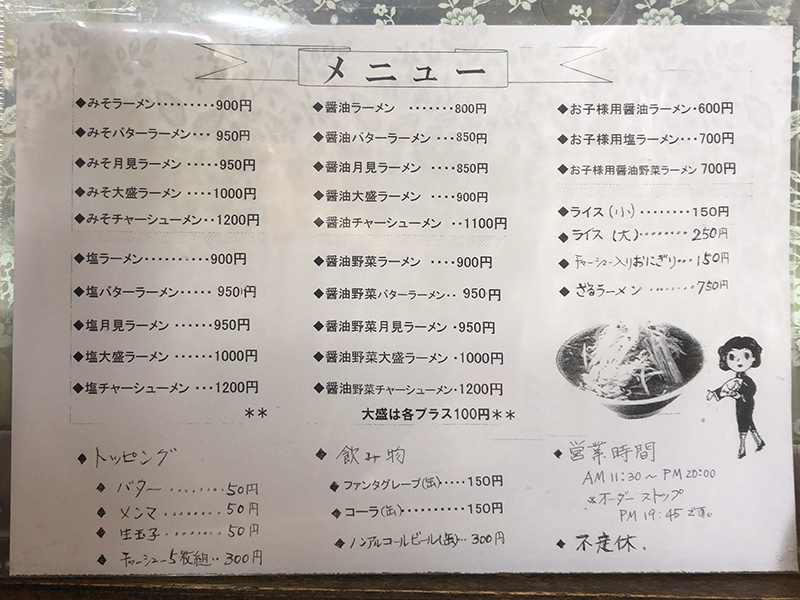 メニュー
◆みそラーメン・・・・・・・・・900円
◆みそバターラーメン・・・ 950円
◆みそ月見ラーメン ・・・・950円
◆みそ大盛ラーメン ・・・・1000円
◆みそチャーシューメン・・1200円
◆塩ラーメン・・・・・・・・・・900円
◆塩バターラーメン・・・・・ 950円
◆塩月見ラーメン ・・・・・・950円
◆塩大盛ラーメン ・・・・・・1000円
◆塩チャーシューメン ・・・1200円
**
◆醤油ラーメン ・・・・・・・800円
◆醤油バターラーメン ・・・850円
◆醤油月見ラーメン ・・・・850円
◆醤油大盛ラーメン ・・・・900円
◆醤油チャーシューメン ・・1100円
◆醤油野菜ラーメン ・・・・900円
◆醤油野菜バターラーメン・・ 950円
◆醤油野菜月見ラーメン ・950円
◆醤油野菜大盛ラーメン ・1000円
◆醤油野菜チャーシューメン・1200円
大盛は各プラス100円**
◆お子様用醤油ラーメン・・600円
◆お子様用塩ラーメン・・・700円
◆お子様用醤油野菜ラーメン 700円
◆ライス(小)・・・・・・・・150円
◆ライス(大)・・・・・・・・・250円
◆チャーシュー入りおにぎり・・・150円
◆ざるラーメン ・・・・・・・・750円
◆トッピング
◆バター・・・・・・・・・50円
◆メンマ・・・・・・・・・50円
◆生玉子・・・・・・・・・50円
◆チャーシュー5枚組・・300円
◆飲み物
◆ファンタグレープ(缶)・・・・150円
◆コーラ(缶)・・・・・・・・・・150円
◆ノンアルコールビール(缶)・・・300円
◆営業時間
AM 11:30 〜 PM 20:00
※オーダーストップ
PM 19:45です。
◆不定休.